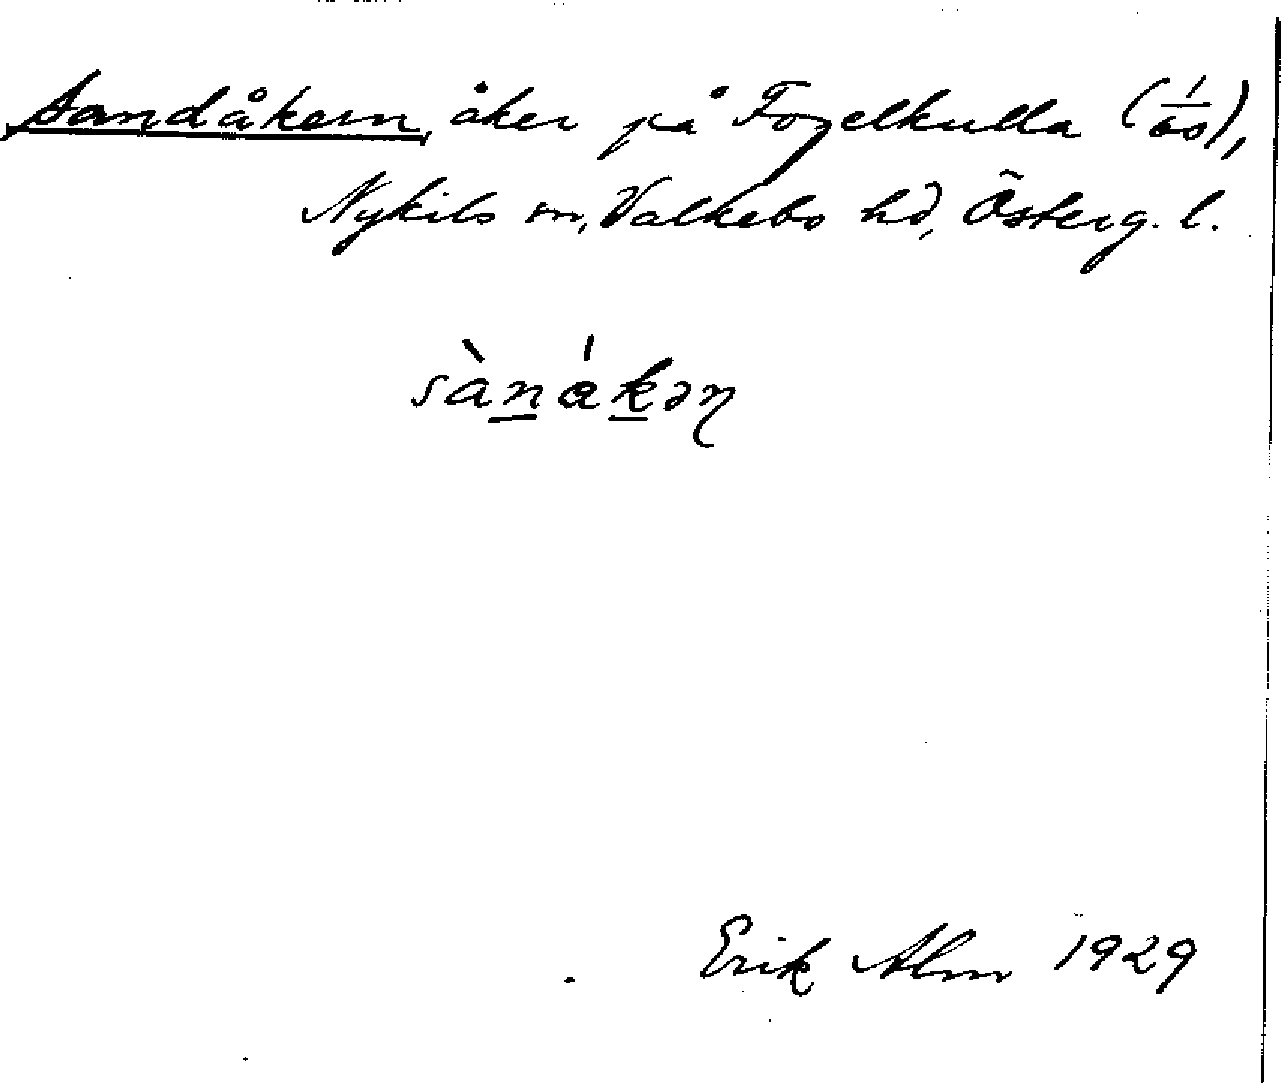 Sandåkern, åker på Fogelkulla (1/60),
Nykils sn, Valkebo hd, Österg. l.
sànákən
Erik Alm 1929